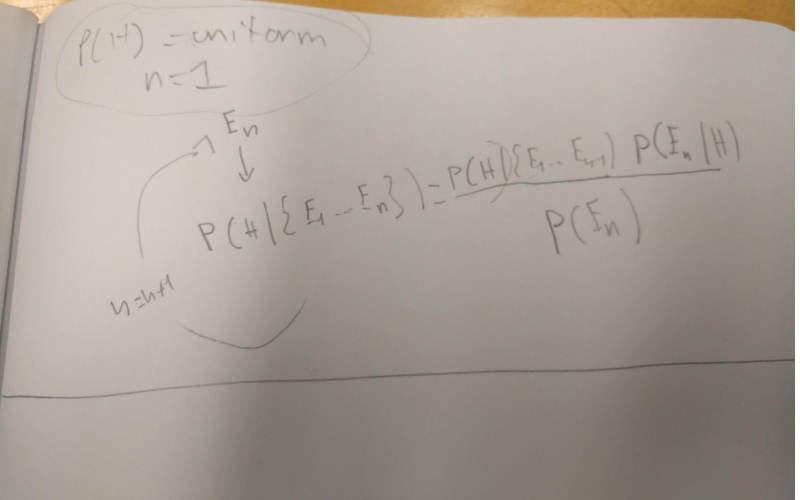 P(H) = uniform
n=1
En
P(H|{E1 ... En}) = P(H|{E1 ... En-1}) P(En|H)
P(En)
n=n+1